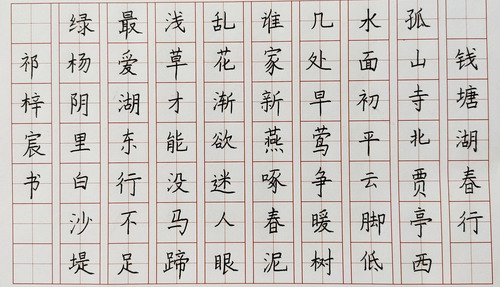 钱塘湖春行
孤山寺北贾亭西
水面初平云脚低
几处早莺争暖树
谁家新燕啄春泥
乱花渐欲迷人眼
浅草才能没马蹄
最爱湖东行不足
绿杨阴里白沙堤
祁梓宸书